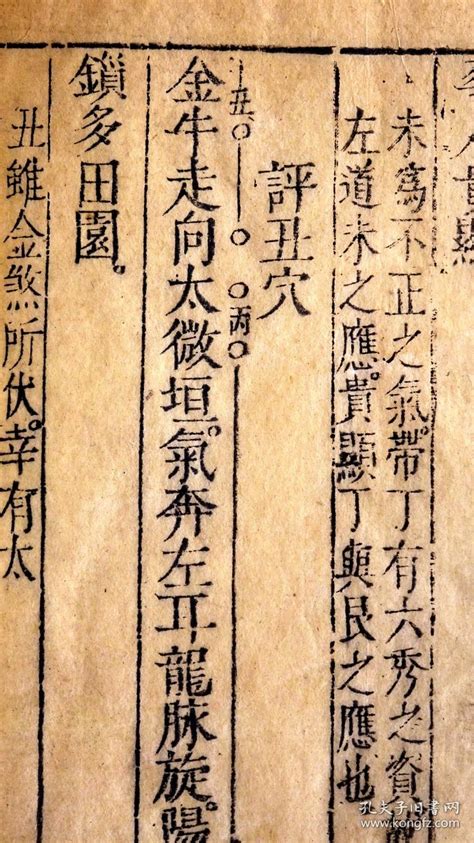 貴顯
未爲不正之氣帶丁有六秀之資
左道未之應。貴顯丁與艮之應也
評丑穴
丑〇 〇 〇丙〇
金牛走向太微垣。氣奔左耳龍脉旋。陽
鎖多田園。
丑雖金煞所伏。幸有太
孔夫子旧书网
www.kongfz.com